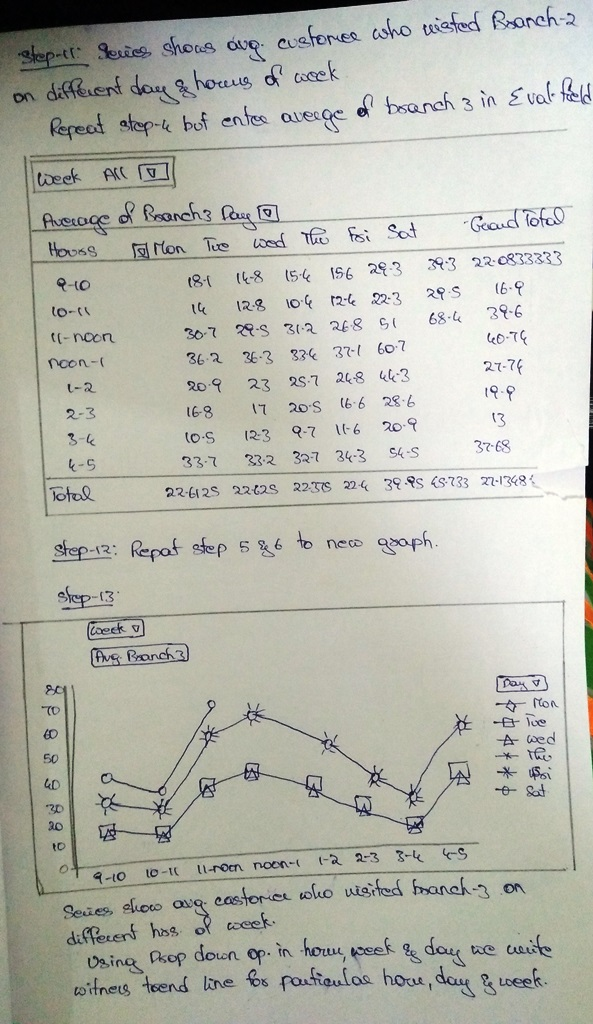 Step-11: Series shows avg. customer who visted Branch-2
on different day & hours of week
Repeat step-4 but enter averge of branch 3 in Σ val. field
Week All ▽
Average of Branch3 Day ▽
Hours ▽ Mon Tue Wed Thu Fri Sat Grand Total
9-10 18.1 14.8 15.4 15.6 29.3 39.3 22.0833333
10-11 14 12.8 10.4 12.4 22.3 29.5 16.9
11-noon 30.7 29.5 31.2 26.8 51 68.4 39.6
noon-1 36.2 36.3 33.4 37.1 60.7 40.74
1-2 20.9 23 25.7 24.8 44.3 27.74
2-3 16.8 17 20.5 16.6 28.6 19.9
3-4 10.5 12.3 9.7 11.6 20.9 13
4-5 33.7 33.2 32.7 34.3 54.5 37.68
Total 22.6125 22.625 22.375 22.4 39.95 45.733 27.1348
Step-12: Repat step 5 & 6 to new graph.
Step-13:
Week ▽
Avg. Branch3
Day ▽
Mon
Tue
Wed
Thu
Fri
Sat
80
70
60
50
40
30
20
10
0
9-10 10-11 11-noon noon-1 1-2 2-3 3-4 4-5
Series show avg castomer who visited branch-3 on
different hrs. of week.
Using Drop down op. in hour, week & day we
witness trend line for particular hour, day & week.